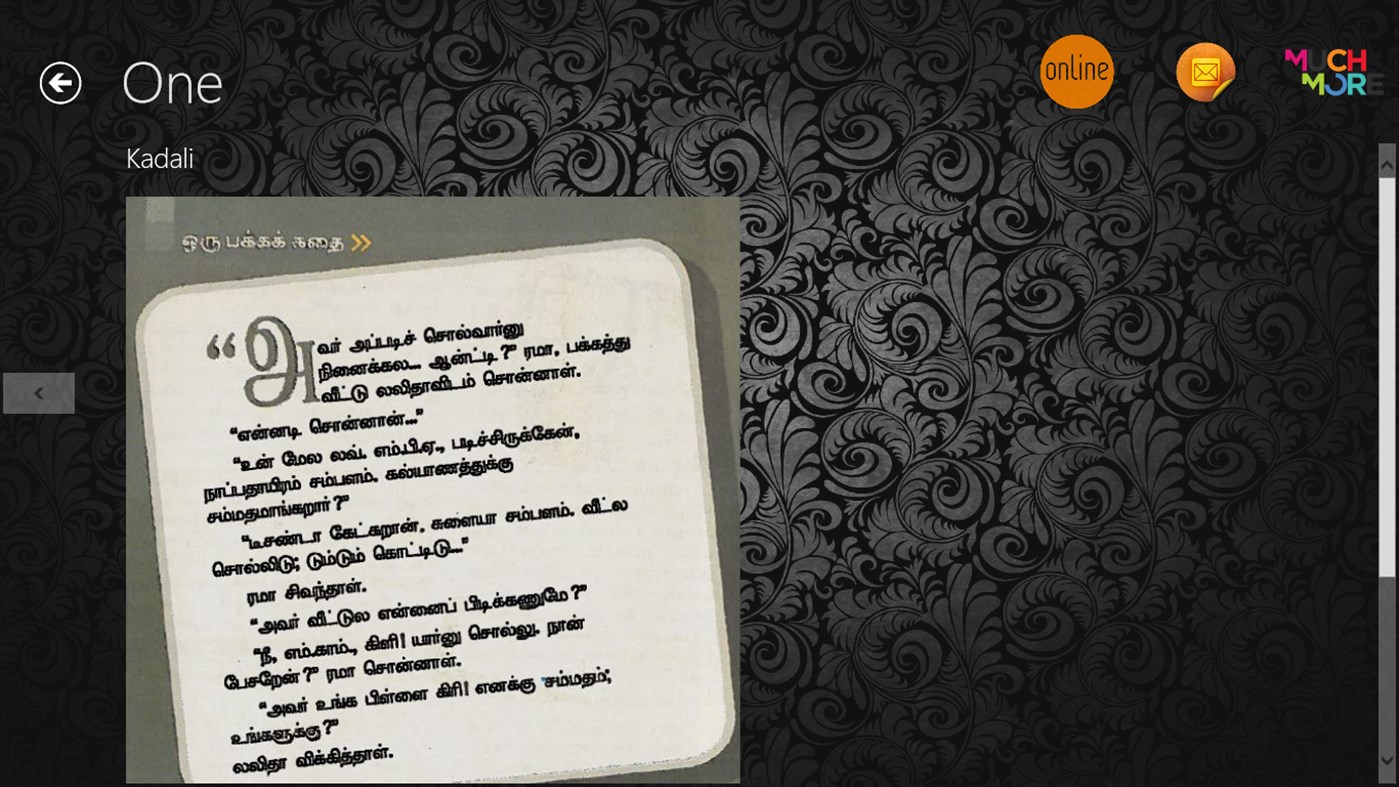 One
online
MUCH
MORE
Kadali
ஒரு பக்கக் கதை
“அவர் அப்படிச் சொல்வார்னு
நினைக்கல... ஆன்ட்டி?” ரமா, பக்கத்து
வீட்டு லலிதாவிடம் சொன்னாள்.
“என்னடி சொன்னான்...”
“உன் மேல லவ். எம்.பி.ஏ., படிச்சிருக்கேன்,
நாப்பதாயிரம் சம்பளம். கல்யாணத்துக்கு
சம்மதமாங்கறார்?”
“டீசண்டா கேட்கறான். சுளையா சம்பளம். வீட்ல
சொல்லிடு; டும்டும் கொட்டிடு...”
ரமா சிவந்தாள்.
“அவர் வீட்டுல என்னைப் பிடிக்கணுமே?”
“நீ, எம்.காம்., கிளி! யார்னு சொல்லு. நான்
பேசறேன்?” ரமா சொன்னாள்.
“அவர் உங்க பிள்ளை கிரி! எனக்கு சம்மதம்;
உங்களுக்கு?”
லலிதா விக்கித்தாள்.